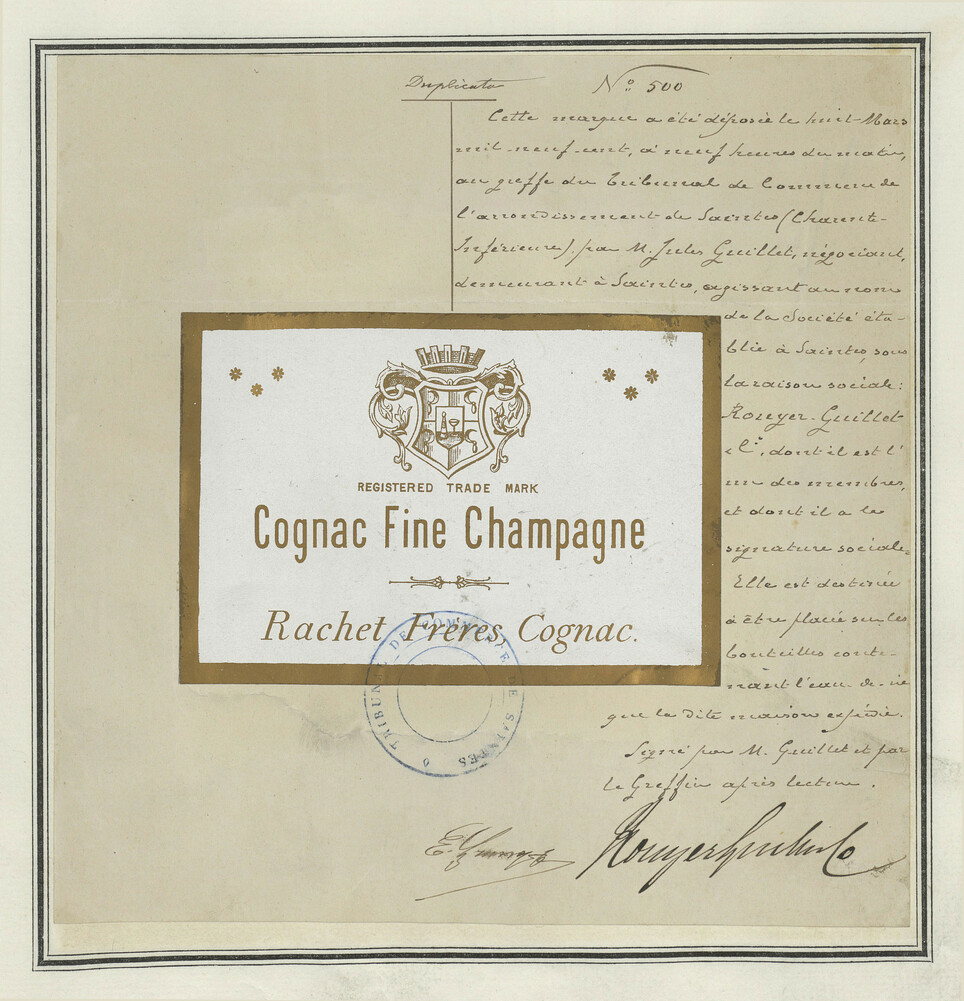 Duplicata
N° 500
Cette marque a été déposée le huit Mars
mil-neuf-cent, à neuf heures du matin,
au greffe du Tribunal de Commerce de
l'arrondissement de Saintes (Charente-
Inférieure), par M. Jules Guillet, négociant,
demeurant à Saintes, agissant au nom
de la Société éta-
blie à Saintes, sous
la raison sociale:
Rouyer-Guillet
& Cie, dont il est l'
un des membres,
et dont il a la
signature sociale.
Elle est destinée
à être placée sur les
bouteilles conte-
nant l'eau-de-vie
que la dite maison expédie.
Signé par M. Guillet et par
le Greffier après lecture.
REGISTERED TRADE MARK
Cognac Fine Champagne
Rachet Frères, Cognac.
TRIBUNAL DE COMMERCE DE SAINTES
Rouyer Guillet & Co